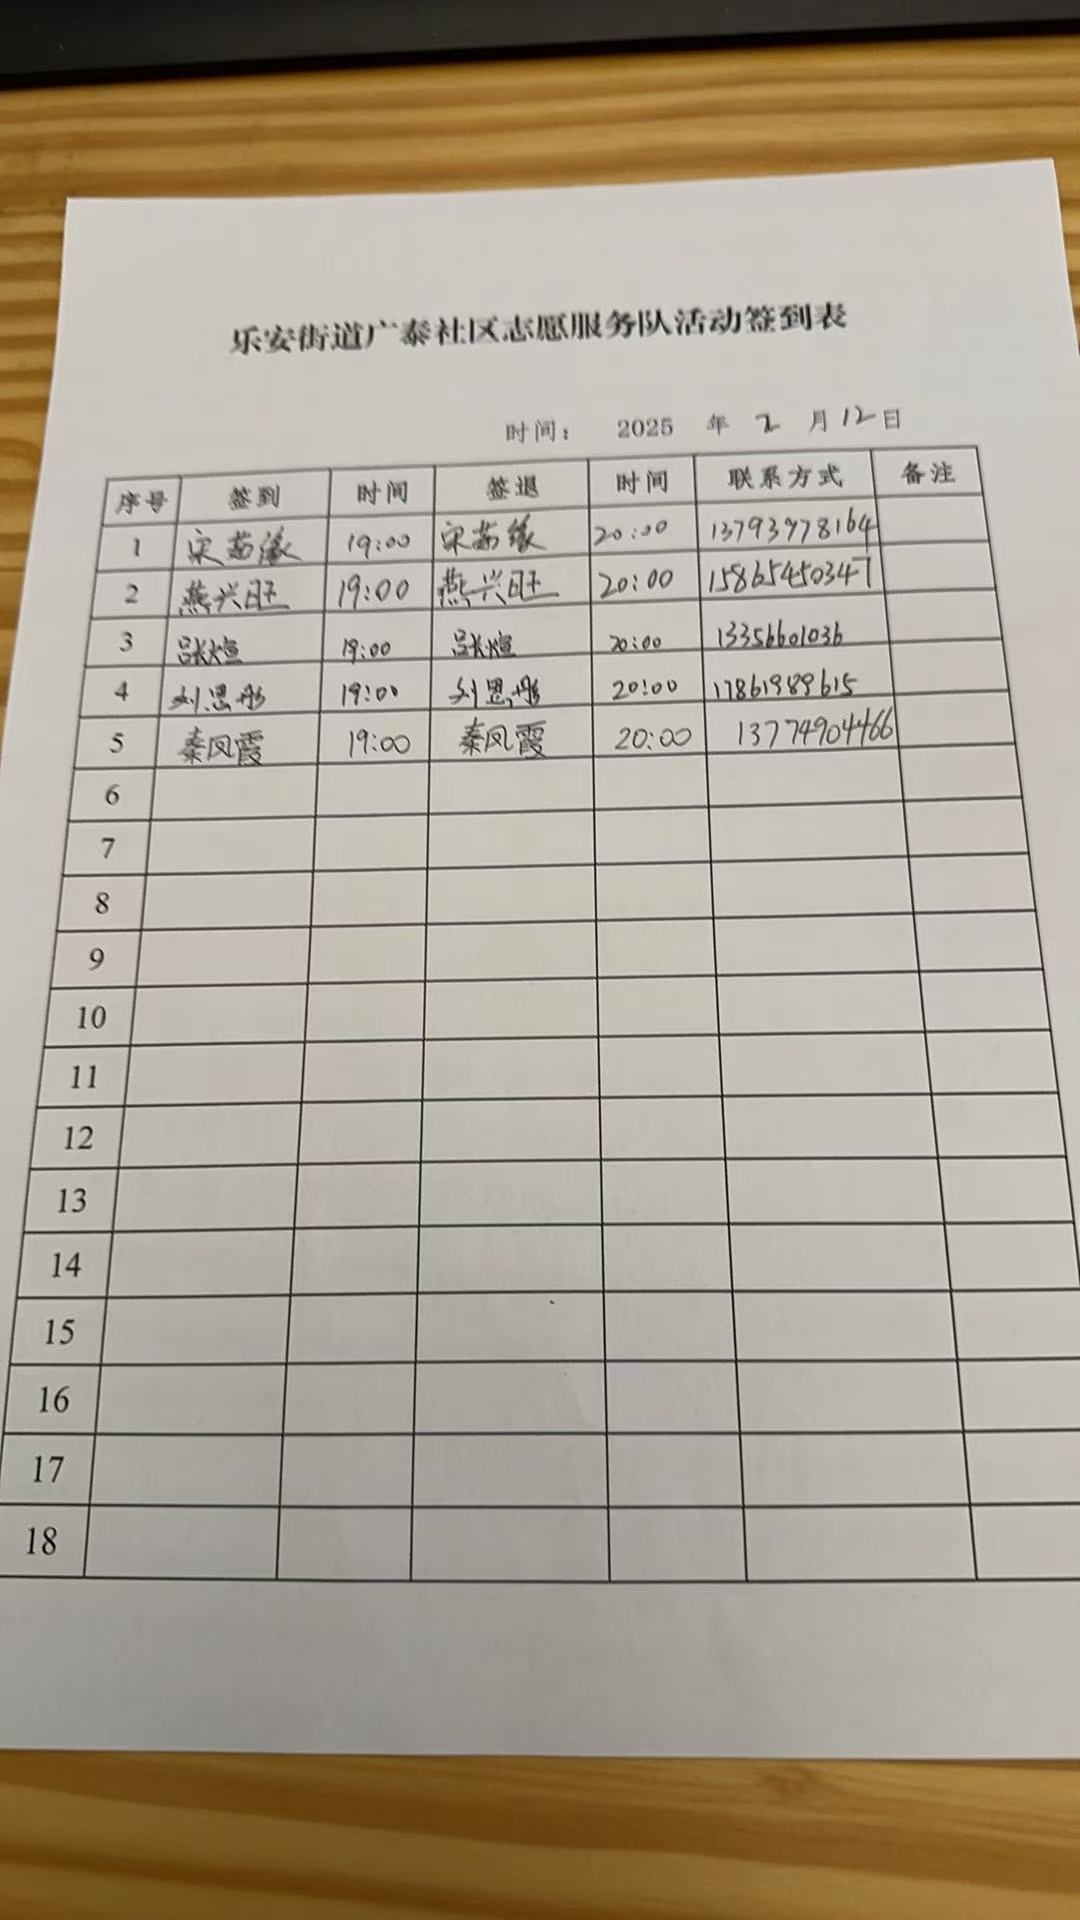 乐安街道广泰社区志愿服务队活动签到表
时间： 2025 年 2 月 12 日
序号 签到 时间 签退 时间 联系方式 备注
1 宋茹缘 19:00 宋茹缘 20:00 13793978164
2 燕兴旺 19:00 燕兴旺 20:00 15865450347
3 19:00 20:00 13356601036
4 刘恩彤 19:00 刘恩彤 20:00 17861989615
5 秦凤霞 19:00 秦凤霞 20:00 13774904466
6
7
8
9
10
11
12
13
14
15
16
17
18